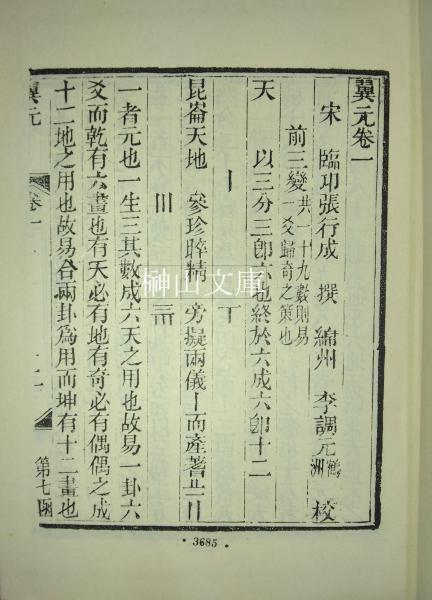 翼元卷一
宋 臨卭張行成 撰 綿州 李調元 鶴洲 校
前三變 共一十九數則易
一爻歸奇之策也
天 以三分三卽六地終於六成六卽十二
丨 丅
昆崙天地 參珍睟精 旁擬兩儀丨而產蓍
一者元也一生三其數成六天之用也故易一卦六
爻而乾有六畫也有天必有地有奇必有偶偶之成
十二地之用也故易合兩卦爲用而坤有十二畫也
翼元 卷一 一 第七函
• 3685 •
榊山文庫